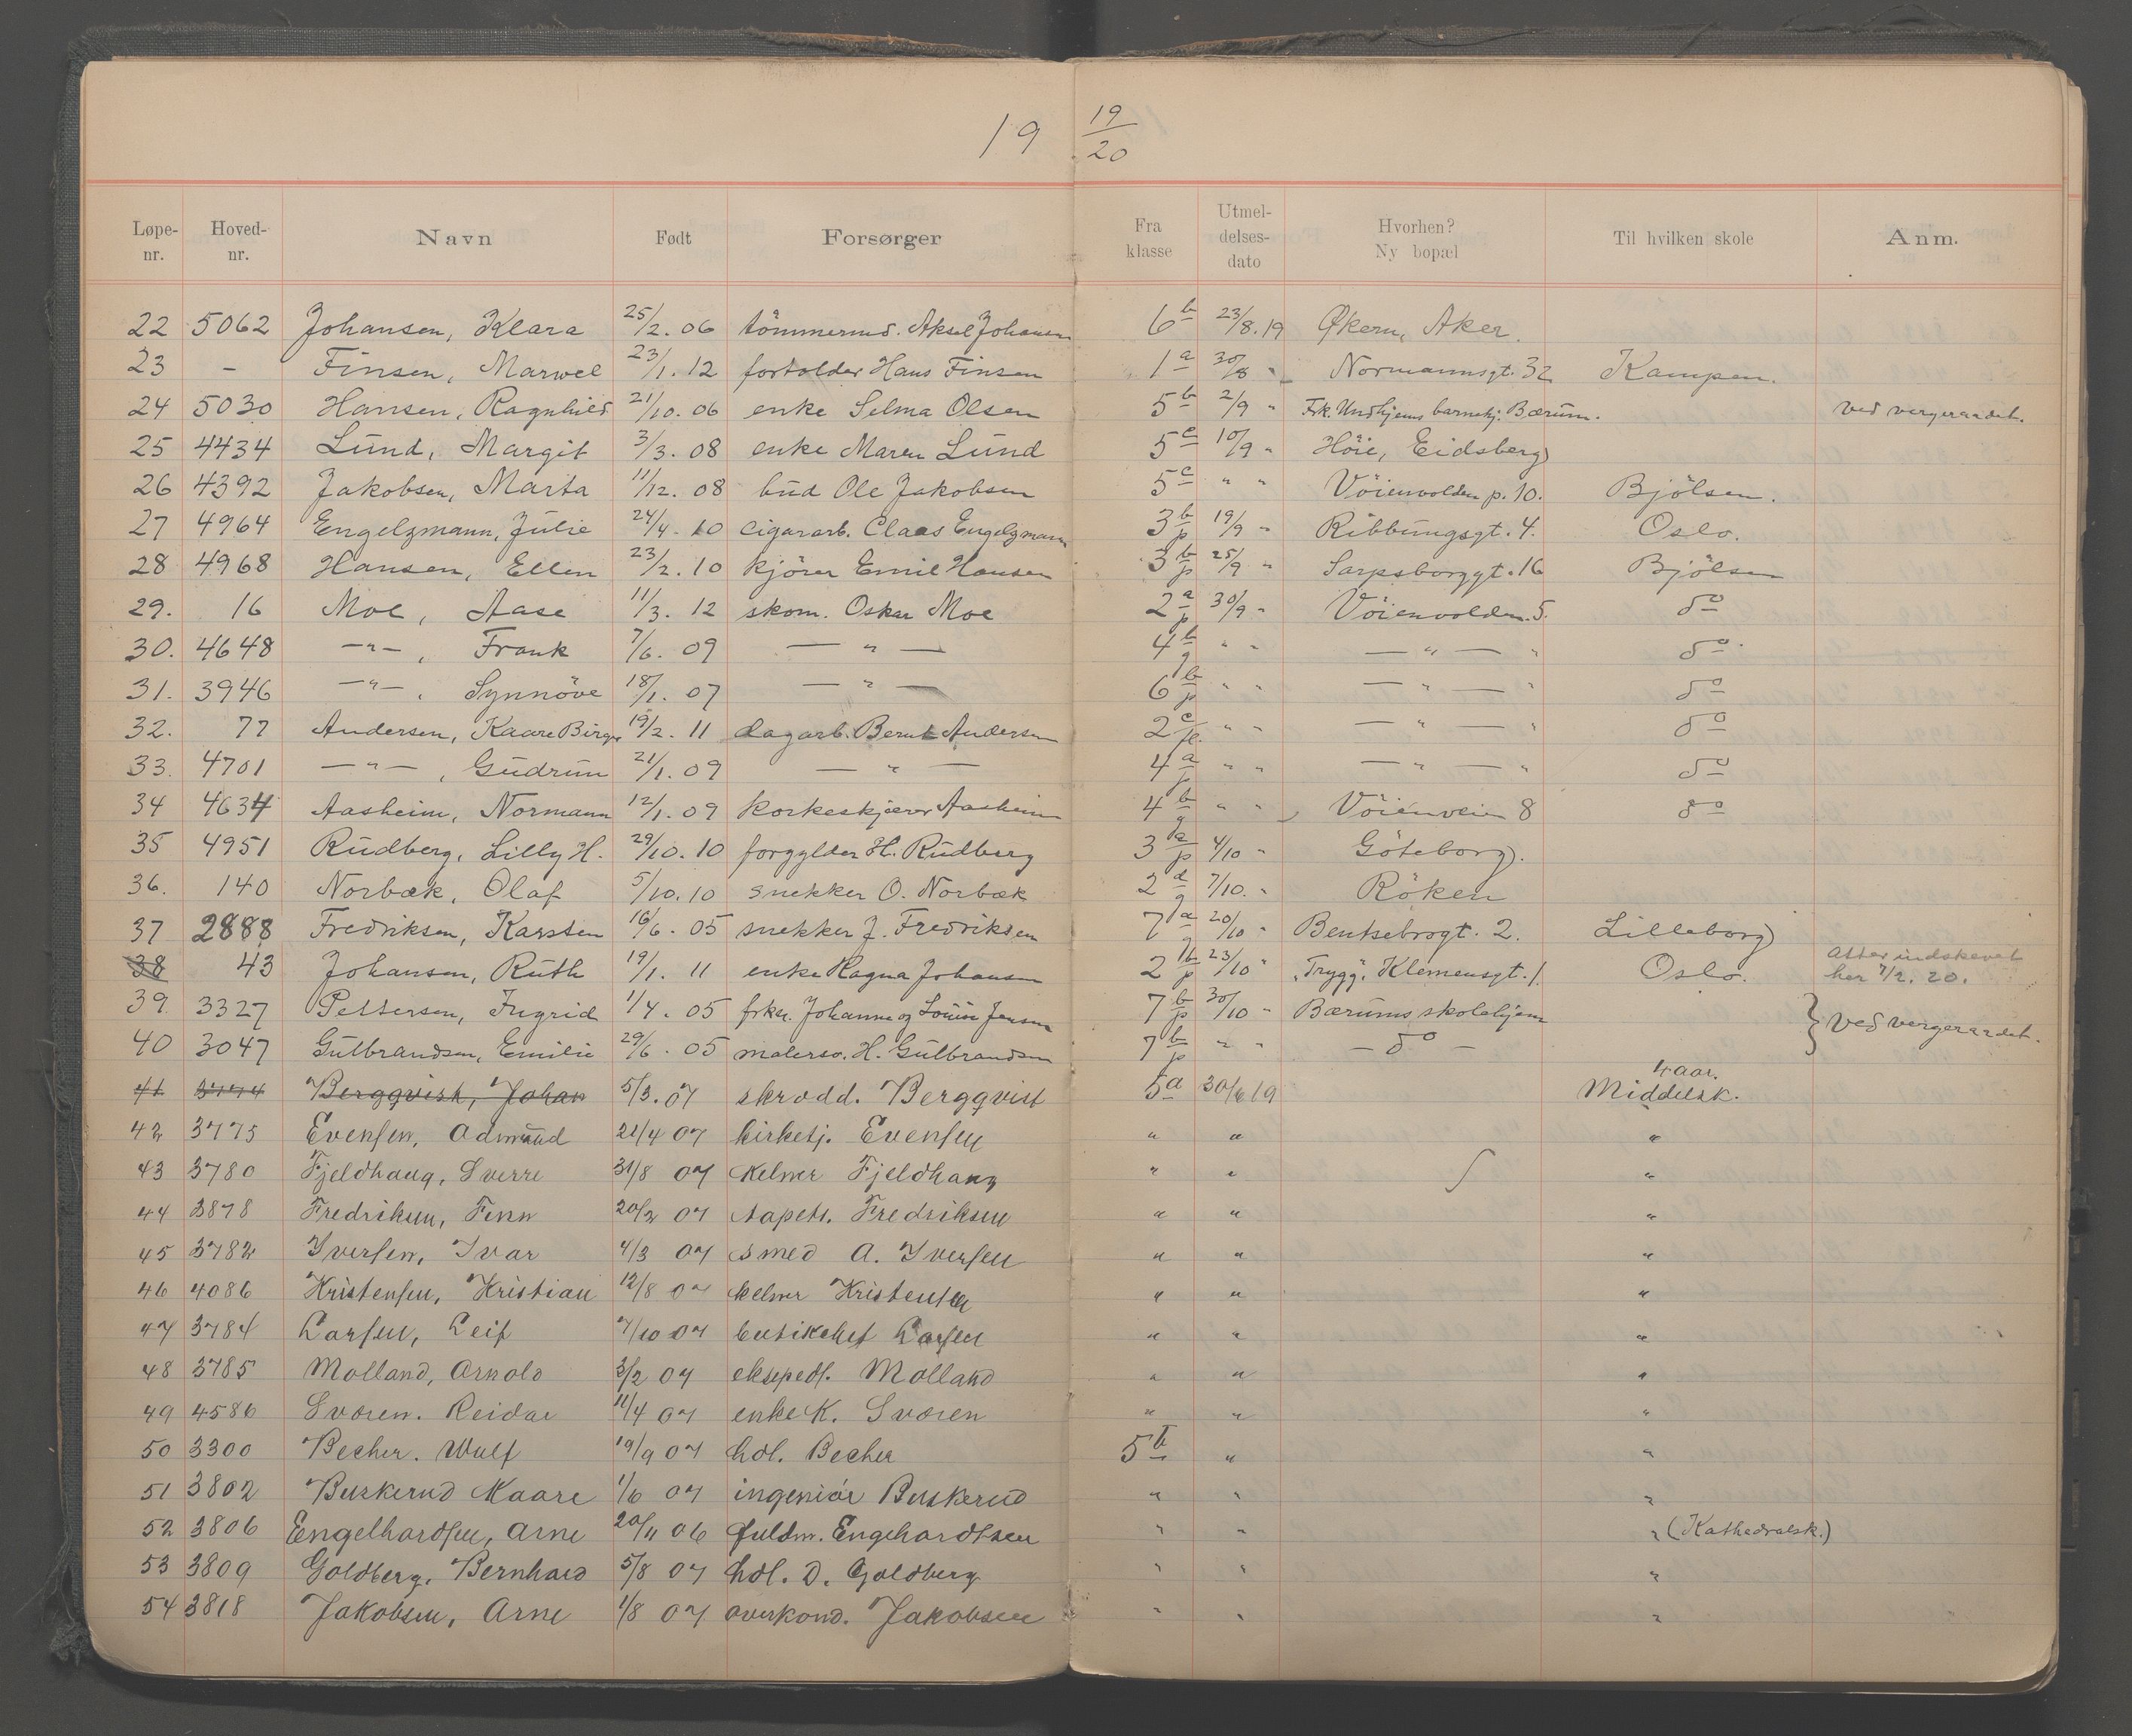 19 19/20
Løpe-nr. Hoved-nr. Navn Født Forsørger Fra klasse Utmel-delses-dato Hvorhen? Ny bopæl Til hvilken skole Anm.
22 5062 Johansen, Klara 25/2. 06 tömmermd. Aksel Johansen 6b 23/8. 19 Økern, Aker.
23 – Finsen, Marwel 23/1. 12 fortolder Hans Finsen 1a 30/8 " Normannsgt. 32 Kampen.
24 5030 Hansen, Ragnhild 21/10. 06 enke Selma Olsen 5b 2/9 " Frk. Undhjems barnehj. Bærum. ved vergeraadet.
25 4434 Lund, Margit 3/3. 08 enke Maren Lund 5c 10/9 " Höie, Eidsberg
26 4392 Jakobsen, Marta 11/12. 08 bud Ole Jakobsen 5c " " Vöienvolden p. 10. Bjölsen.
27 4964 Engelzmann, Julie 24/4. 10 cigararb. Claas Engelzmann 3b p 19/9 " Ribbungsgt. 4. Oslo.
28 4968 Hansen, Ellen 23/2. 10 kjörer Emil Hansen 3b p 25/9 " Sarpsborggt. 16 Bjölsen
29. 16 Moe, Aase 11/3. 12 skom. Oskar Moe 2a p 30/9 " Vöienvolden. 5. do
30. 4648 —"—, Frank 7/6. 09 — " — 4b g " " — " — " do.
31. 3946 —"—, Synnöve 18/1. 07 — " — 6b p " " — " — " do
32. 77 Andersen, Kaare Birger 19/2. 11 dagarb. Bernt Andersen 2c " " — " — " do
33. 4701 —"—, Gudrun 21/1. 09 — " — 4a p " " — " — " do
34 4634 Aasheim, Normann 12/1. 09 korkeskjærer Aasheim 4b g " " Vöienveien 8 do
35 4951 Rudberg, Lilly H. 29/10. 10 forgylder H. Rudberg 3a p 4/10 " Göteborg.
36. 140 Norbæk, Olaf 5/10. 10 snekker O. Norbæk 2d g 7/10. " Röken
37 2888 Fredriksen, Karsten 16/6. 05 snekker J. Fredriksen 7a g 20/10 " Bentsebrogt. 2. Lilleborg
38 43 Johansen, Ruth 19/1. 11 enke Ragna Johansen 2b p 23/10 " "Trygg", Klemensgt. 1. Oslo. Atter indskrevet her 7/2. 20.
39. 3327 Pettersen, Ingrid 1/4. 05 frkn. Johanne og Louise Jensen 7b p 30/10 " Bærums skolehjem } ved vergeraadet.
40 3047 Gulbrandsen, Emilie 29/6. 05 malersv. H. Gulbrandsen 7b p " " – do –
41 3774 Bergqvist, Johan 5/3. 07 skrædd. Bergqvist 5a 30/6 19 4 aar. Middelsk.
42 3775 Evensen, Admund 21/4 07 kirketj. Evensen " " "
43 3780 Fjeldhaug, Sverre 31/8 07 kelner Fjeldhaug " " "
44 3878 Fredriksen, Finn 20/2 07 tapets. Fredriksen " " "
45 3782 Iversen, Ivar 4/3 07 smed A. Iversen " " "
46 4086 Kristensen, Kristian 12/8 07 kelner Kristensen " " "
47 3784 Larsen, Leif 7/10 07 butikchef Larsen " " "
48 3785 Molland, Arnold 3/2 07 eksped. Molland " " "
49 4586 Sværen. Reidar 11/4 07 enke K. Sværen " " "
50 3300 Becher. Wulf 19/9 07 hdl. Becher 5b " "
51 3802 Buskerud Kaare 1/6 07 ingeniör Buskerud " " "
52 3806 Engelhardsen, Arne 20/11 06 fuldm. Engehardtsen " " " (Kathedralsk.)
53 3809 Goldberg, Bernhard 5/8 07 hdl. D. Goldberg " " "
54 3818 Jakobsen, Arne 1/8 07 overkond. Jakobsen " " "